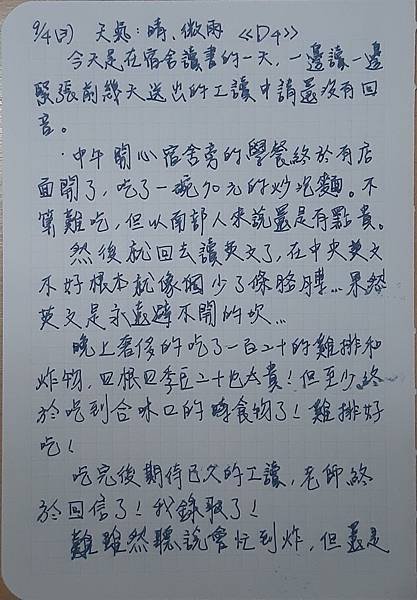 9/4(日) 天氣：晴、微雨 《D4》
今天是在宿舍讀書的一天，一邊讀一邊
緊張前幾天送出的工讀申請還沒有回
音。
中午開心宿舍旁的學餐終於有店
面開了，吃了一碗70元的炒泡麵。不
算難吃，但以南部人來說還是有點貴。
然後就回去讀英文了，在中央英文
不好根本就像個少了條胳膊…果然
英文是永遠跨不開的坎…
晚上奢侈的吃了一百二十的雞排和
炸物，四根四季豆二十也太貴！但至少終
於吃到合味口的食物了！雞排好
吃！
吃完後期待已久的工讀，老師終
於回信了！我錄取了！
雖然聽說會忙到炸，但還是